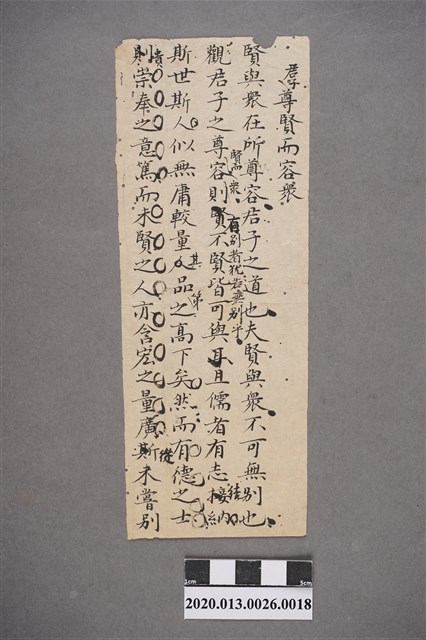 尊賢而容衆
賢與衆在所尊容君子之道也夫賢與衆不可無別也
賢而衆有別者犹若無別乎
觀君子之尊容則賢不賢皆可與耳且儒者有志接納
結
斯世斯人似無庸較量人品之高下矣然而有德之士
其第
則崇奉之意篤而未賢之人亦含宏之量廣斯未嘗別
從
1cm 5cm
2020.013.0026.0018